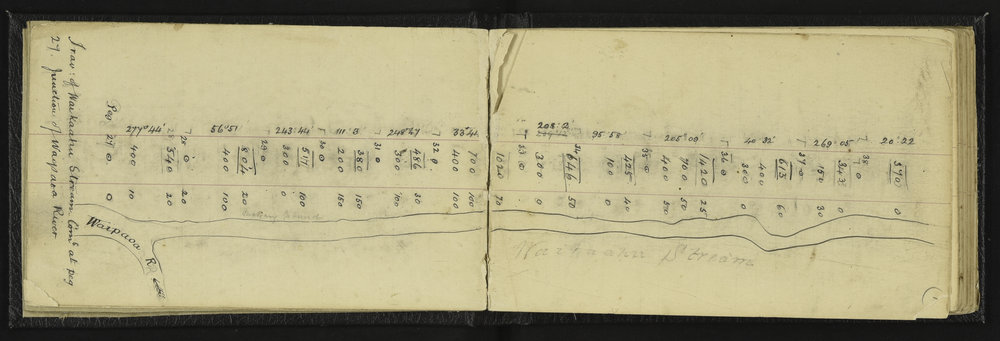 Trav: of Waikaahu Stream Com.g at peg
27. Junction of Waipaoa River
Peg 27 0 0
277° 44' 400 10
340 20
28 0 20
56° 51 400 100
804 20
29 0
243: 44' 300 0
517 100
30 0
111. 3 200 150
380 150
31 0
248° 47 300 100
486 30
32 0
33° 41 400 100
700 100
1020 70
33 0
208: 2' 300 0
646 50
34
95 58 100 0
425 40
35 0
205° 09' 400 50
700 50
1420 25
36 0
40 32 300 0
400
613 60
37 0
269: 05' 150 30
343 0
38 0
20° 22
570 0
Waipaoa R
Waikaahu Stream